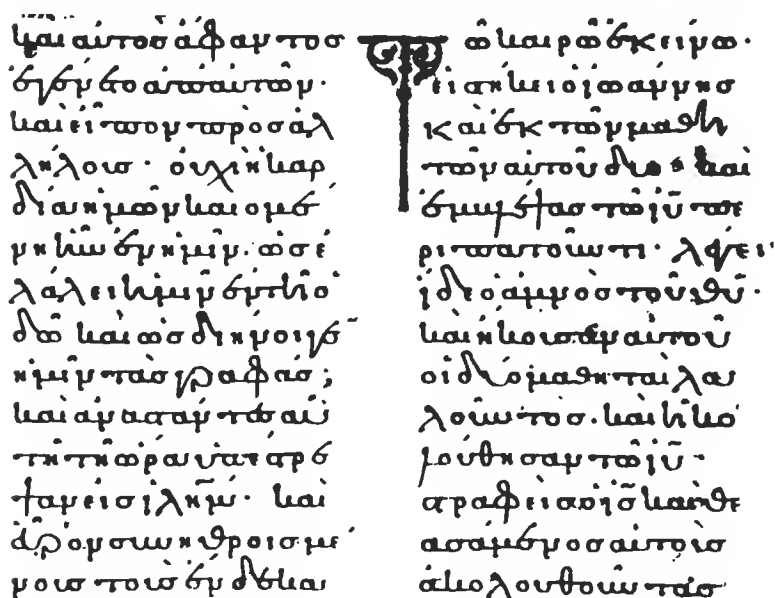 καὶ αὐτὸς ἄφαντος
ἐγένετο ἀπ' αὐτῶν·
καὶ εἶπον πρὸς ἀλ
λήλους· οὐχὶ ἡ καρ
δία ἡμῶν καιομέ
νη ἦν ἐν ἡμῖν· ὡς ἐ
λάλει ἡμῖν ἐν τῇ ὁ
δῶ καὶ ὡς διήνοιγε
ἡμῖν τὰς γραφάς;
καὶ ἀναστάντες αὐ
τῆ τῆ ὥρα ὑπέστρε
ψαν εἰς ἰλη̅μ· καὶ
εὗρον συνηθροισμέ
νους τοὺς ἕνδεκα
Τῶ καιρῶ ἐκείνω·
εἱστήκει ὁ ἰωάννης
καὶ ἐκ τῶν μαθη
τῶν αὐτοῦ δύο καὶ
ἐμβλέψας τῶ ιυ̅ πε
ριπατοῦντι· λέγει·
ἴδε ὁ ἀμνὸς τοῦ θυ̅·
καὶ ἤκουσαν αὐτοῦ
οἱ δύο μαθηταὶ λα
λοῦντος· καὶ ἠκο
λούθησαν τῶ ιυ̅·
στραφεὶς ὁ ις̅ καὶ θε
ασάμενος αὐτοὺς
ἀκολουθοῦντας